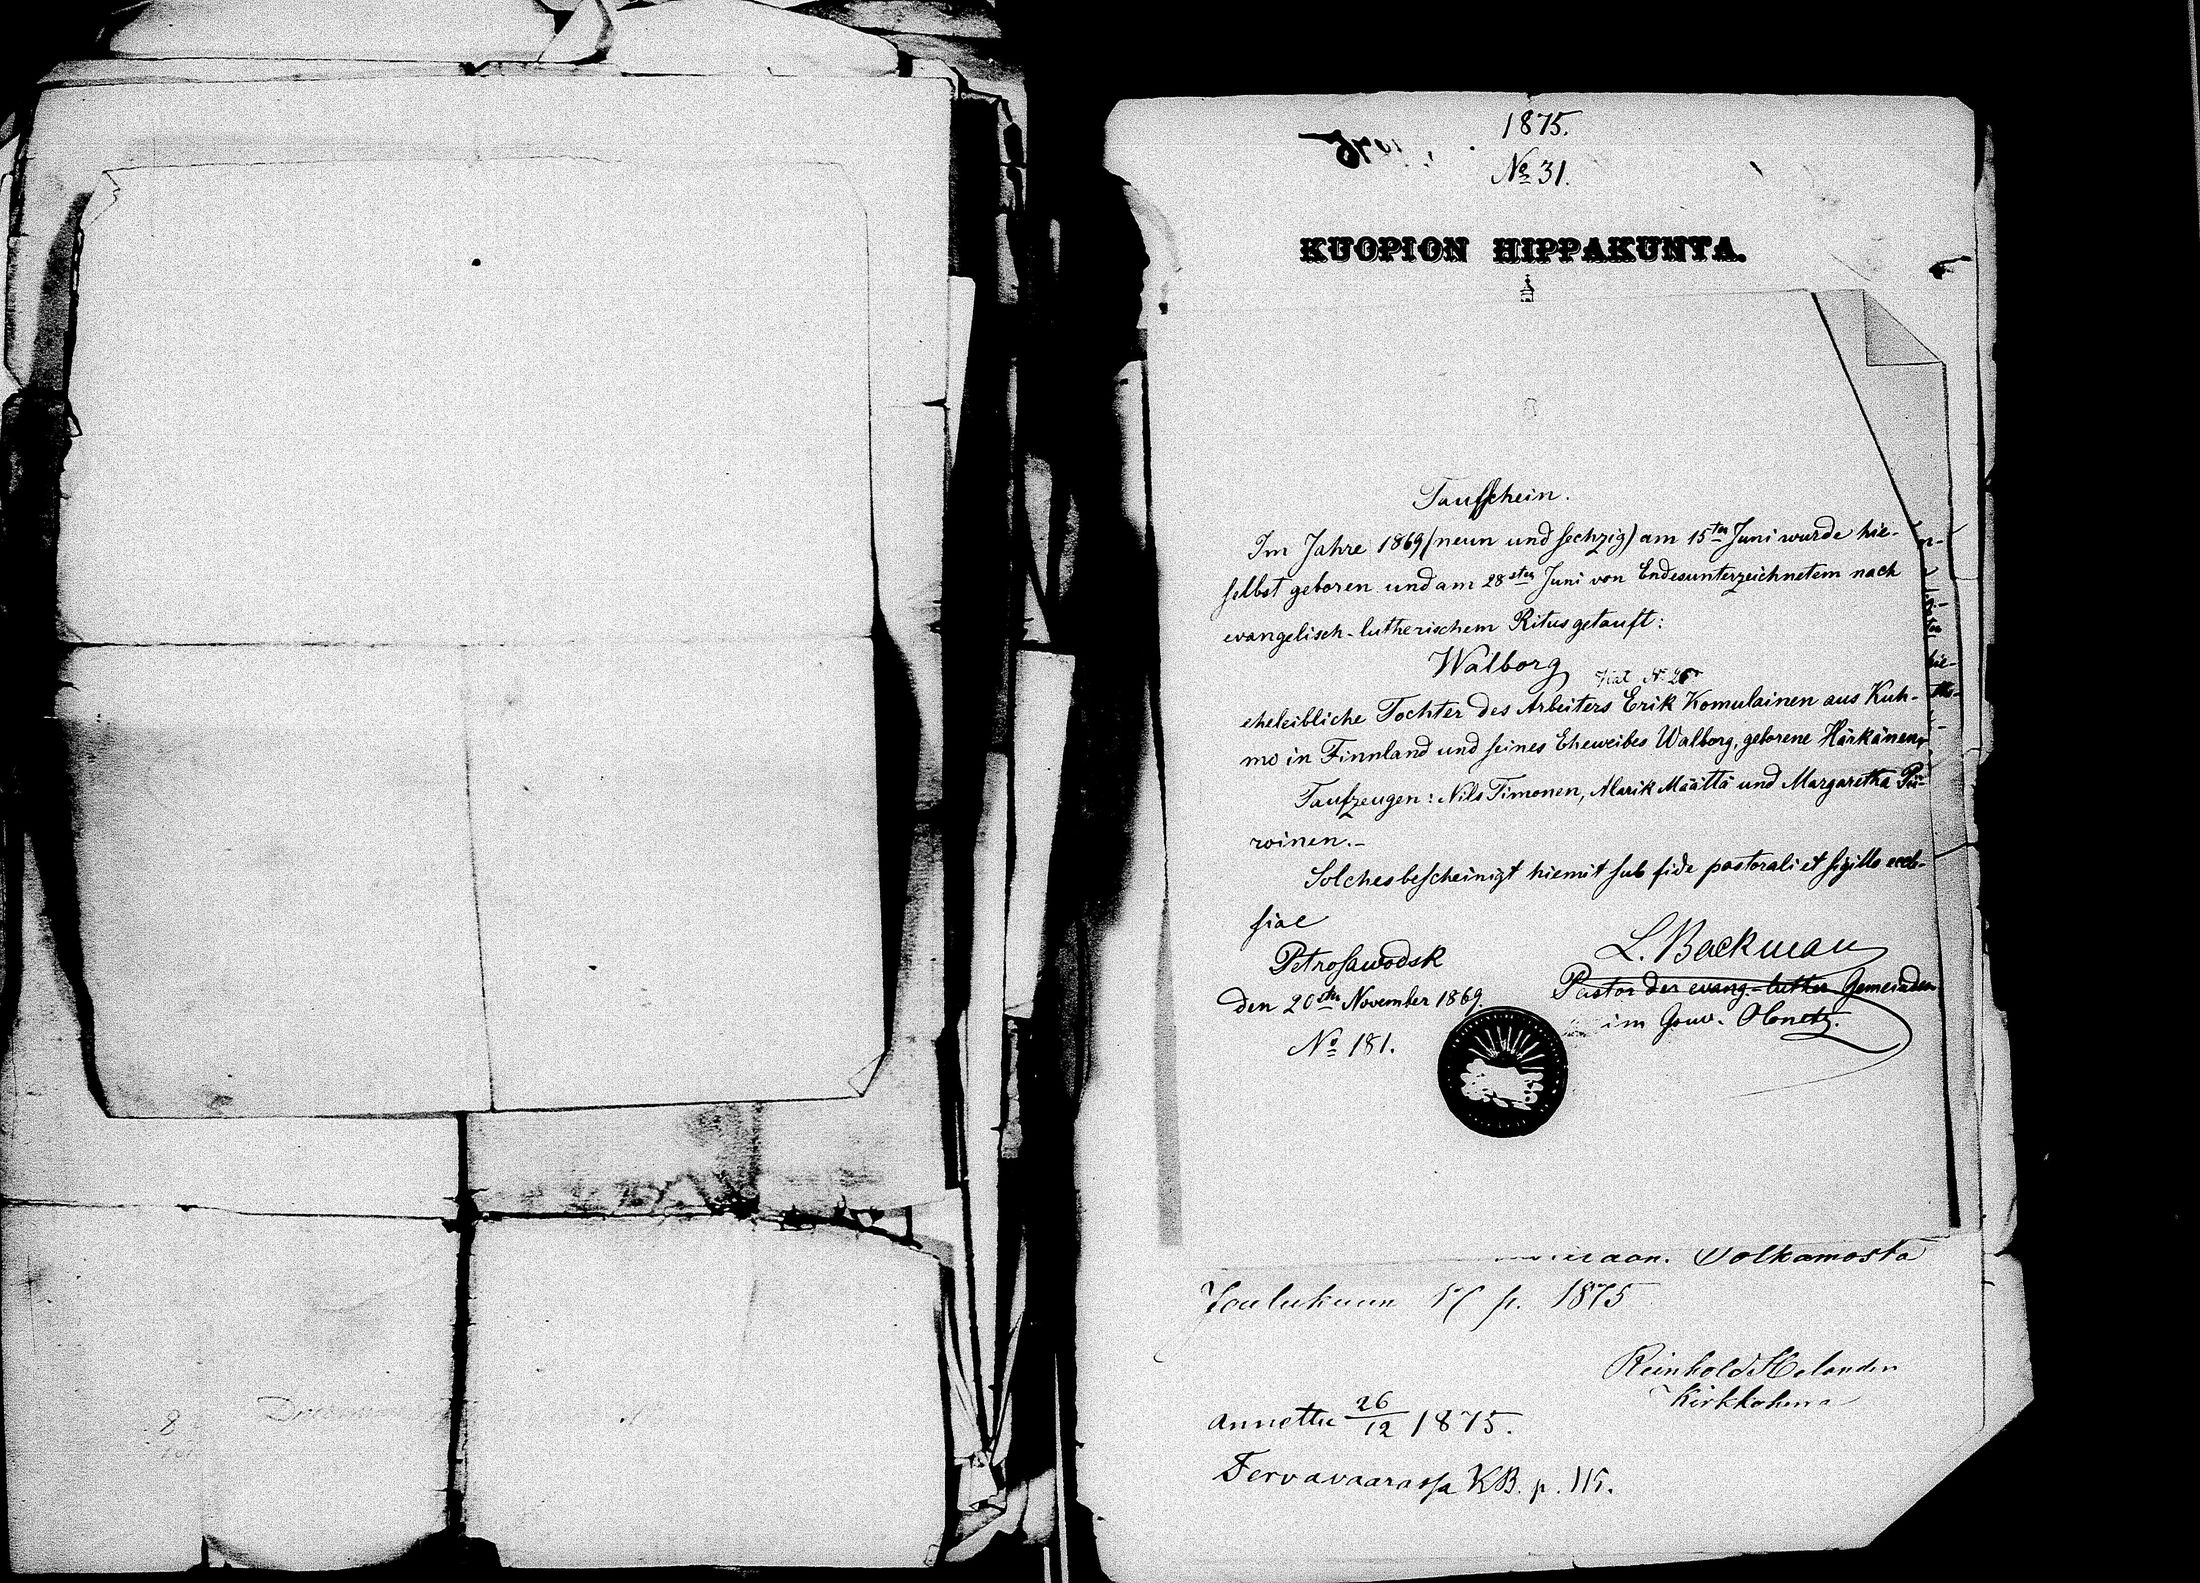 1875.
No 31.
KUOPION HIPPAKUNTA.
Taufschein.
Im Jahre 1869 (neun und sechzig) am 15ten Juni wurde hie-
selbst geboren und am 28sten Juni von Endesunterzeichnetem nach
evangelisch-lutherischem Ritus getauft:
Walborg
eheleibliche Tochter des Arbeiters Erik Komulainen aus Kuh-
mo in Finnland und seines Eheweibes Walborg, geborene Härkänen,
Taufzeugen: Nils Timonen, Alarik Määttä und Margaretha Pii-
roinen.-
Solches bescheinigt hiemit sub fide pastorali et sigillo eccle-
siae
Petrosawodsk
den 20sten November 1869.
No 181.
L. Backman
Pastor der evang.-luther Gemeinden
im Gouv. Olonetz.
Volkamosta
Joulukuun p. 1875
Reinhold Helander
Kirkkoherra
Annettu 26/12 1875.
Tervavaarassa KB. p. 115.